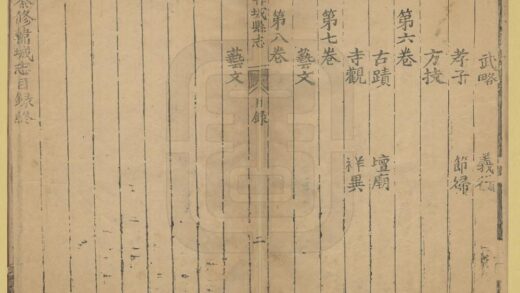 武略 義行
孝子 節婦
方技
第六卷
古蹟 壇廟
寺觀 祥異
第七卷
藝文
第八卷
城縣志 目錄 二
藝文
修諸城志目錄終